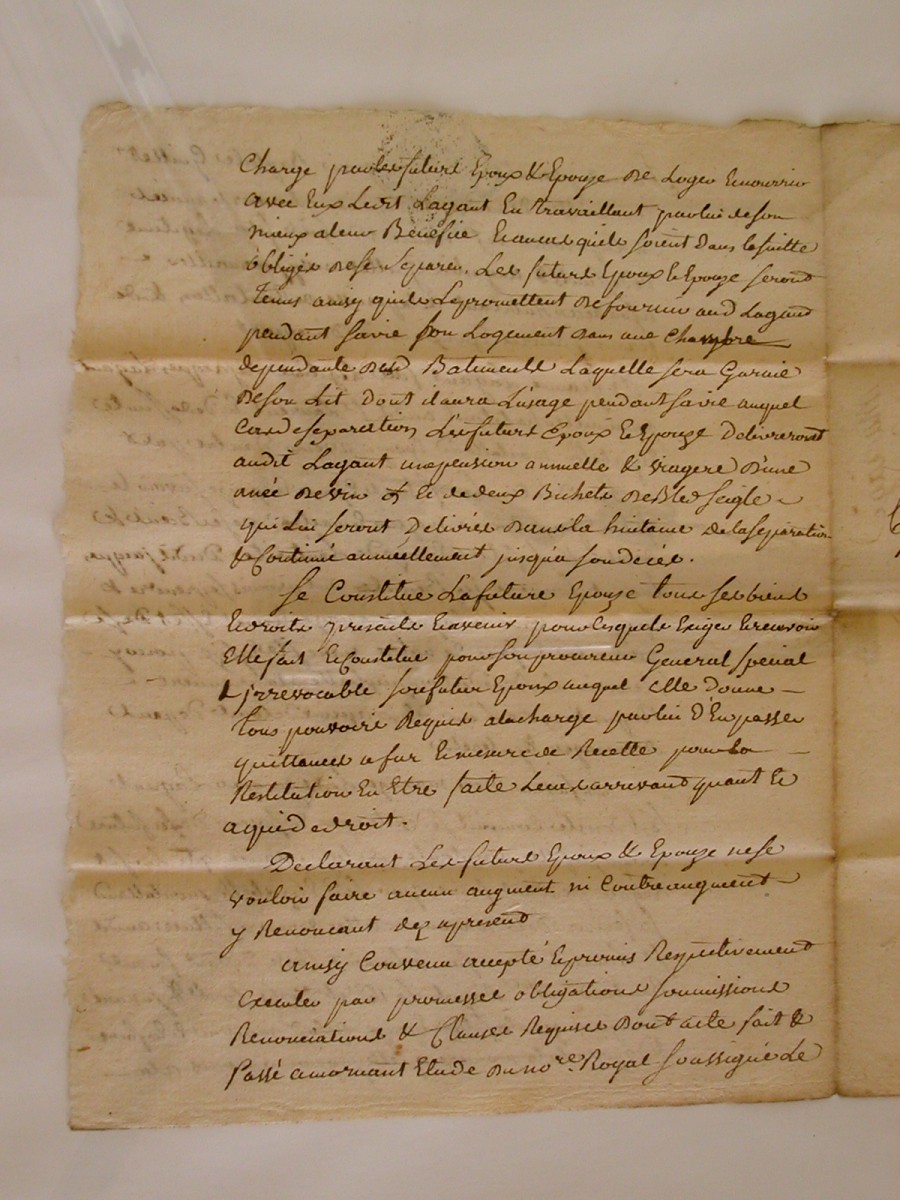 charge par les futurs Epoux & Epouze de Loger & nourrir
avec Eux Ledit Lagant En travaillant par lui de son
mieux a leur Bénéfice & au cas qu'ils soient Dans la suitte
obligés de se séparer, Les futurs Epoux & Epouze seront
tenus ainsy quils Le promettent de fournir aud Lagant
pendant sa vie son Logement dans une Chambre
dependante desd Batiments Laquelle sera Garnie
de son Lit dont il aura L'usage pendant sa vie auquel
Cas de separation Les futurs Epoux & Epouze Delivreront
audit Lagant une pension annuelle & viagere D'une
anée de vin & de deux Bichets de Bled seigle
qui Lui seront Delivrés dans la huitaine de la separation
& Continué annuellement jusqu'a son decès.
Se Constitue La future Epouze tous ses biens
& droits presents & avenir pour lesquels Exiger & recevoir
Elle fait & Constitue pour son procureur General special
& jrrevocable son futur Epoux auquel elle donne
tous pouvoirs Requis a la charge par lui D'En passer
quittances a fur & mesure de Recette pour La
Restitution En Etre faite Le cas arrivant quant &
a qui de droit.
Declarant Les futurs Epoux & Epouze ne se
vouloir faire aucun augment ni Contre augment
y Renoncant dez apresent
ainsy Convenu accepté & promis Respectivement
Executer par promesses obligations soumissions
Renonciations & Clauses Requises Dont acte fait &
Passé a mornant Etude du no.re Royal soussigné Le